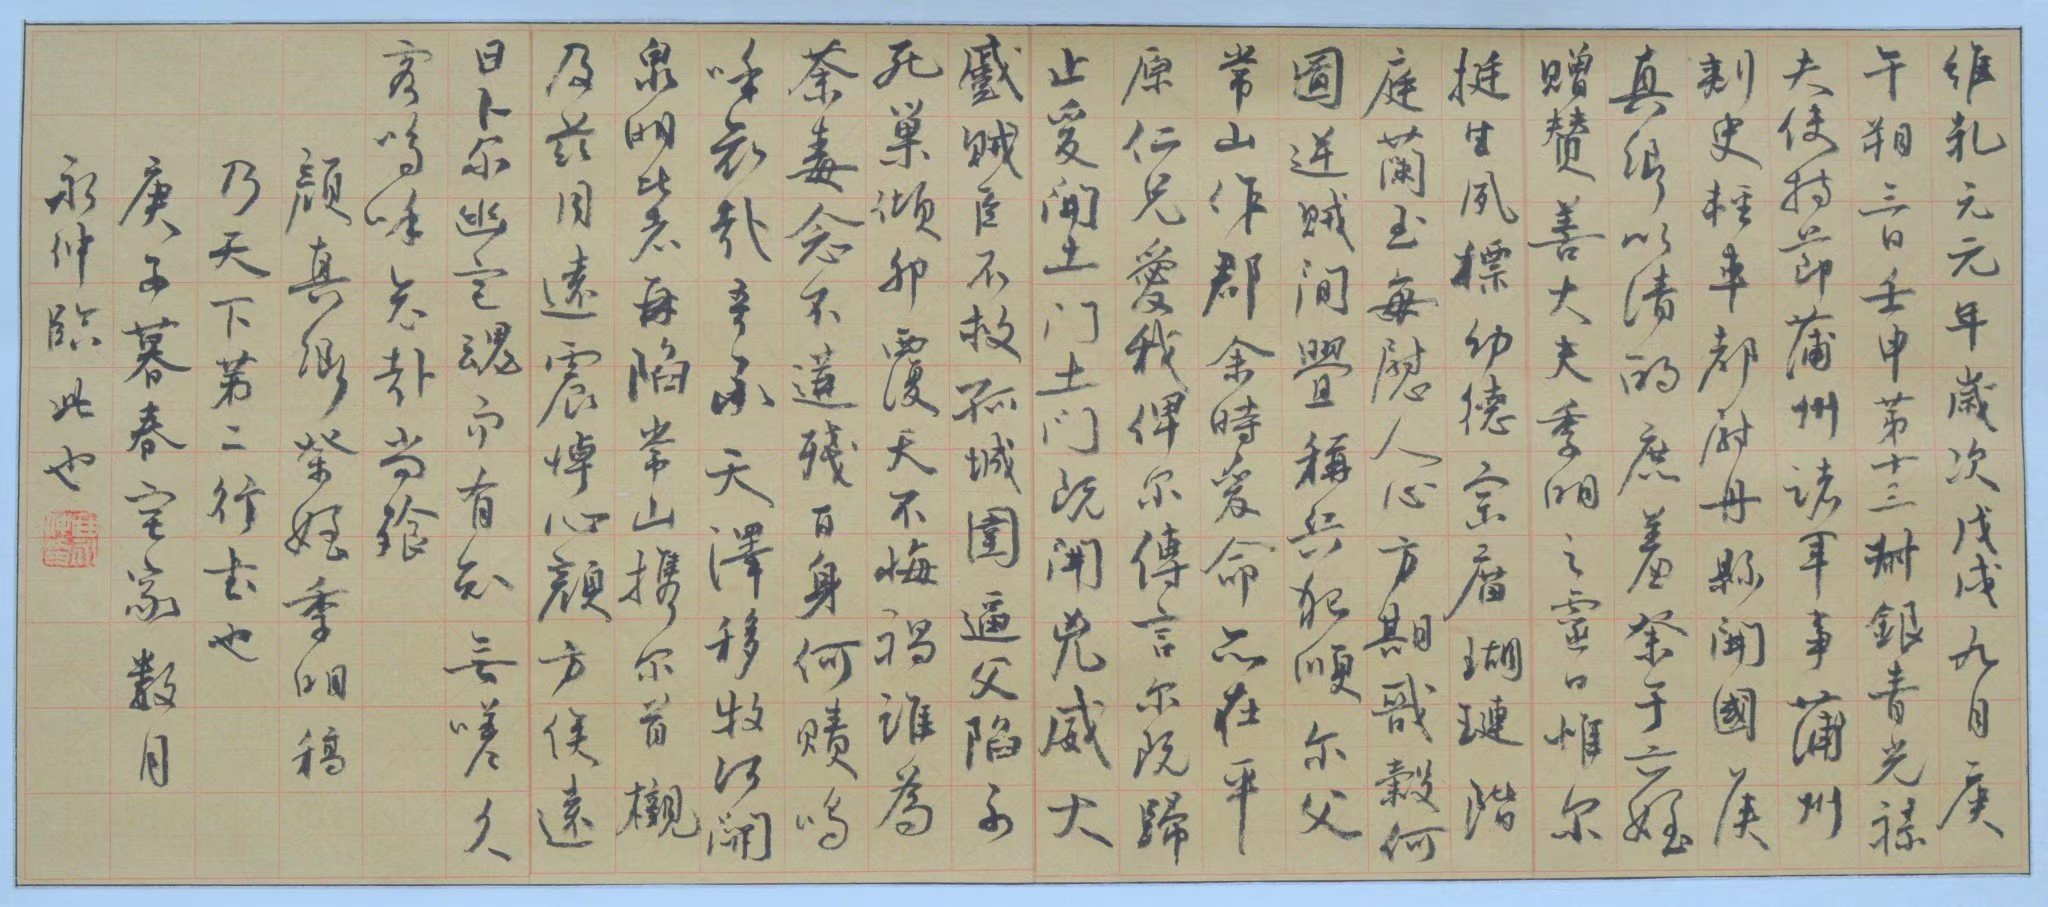 維乾元元年歲次戊戌九月庚
午朔三日壬申第十三叔銀青光祿
夫使持節蒲州諸軍事蒲州
刺史輕車都尉丹縣開國侯
真卿以清酌庶羞祭于亡姪
贈贊善大夫季明之靈曰惟尔
挺生夙標幼德宗廟瑚璉階
庭蘭玉每慰人心方期戩穀何
圖逆賊閒釁稱兵犯順尔父
常山作郡余時受命亦在平
原仁兄愛我俾尔傳言尔既歸
止爰開土门土门既開兇威大
蹙賊臣不救孤城圍逼父陷子
死巢傾卵覆天不悔禍誰為
荼毒念不遘殘百身何贖嗚
呼哀哉吾承天澤移牧河關
泉明比者再陷常山攜尔首櫬
及茲同遠震悼心顏方俟遠
日卜尔幽宅魂而有知無嗟久
客嗚呼哀哉尚饗
顏真卿祭姪季明稿
乃天下第二行書也
庚子暮春宅家數月
永仲臨此也